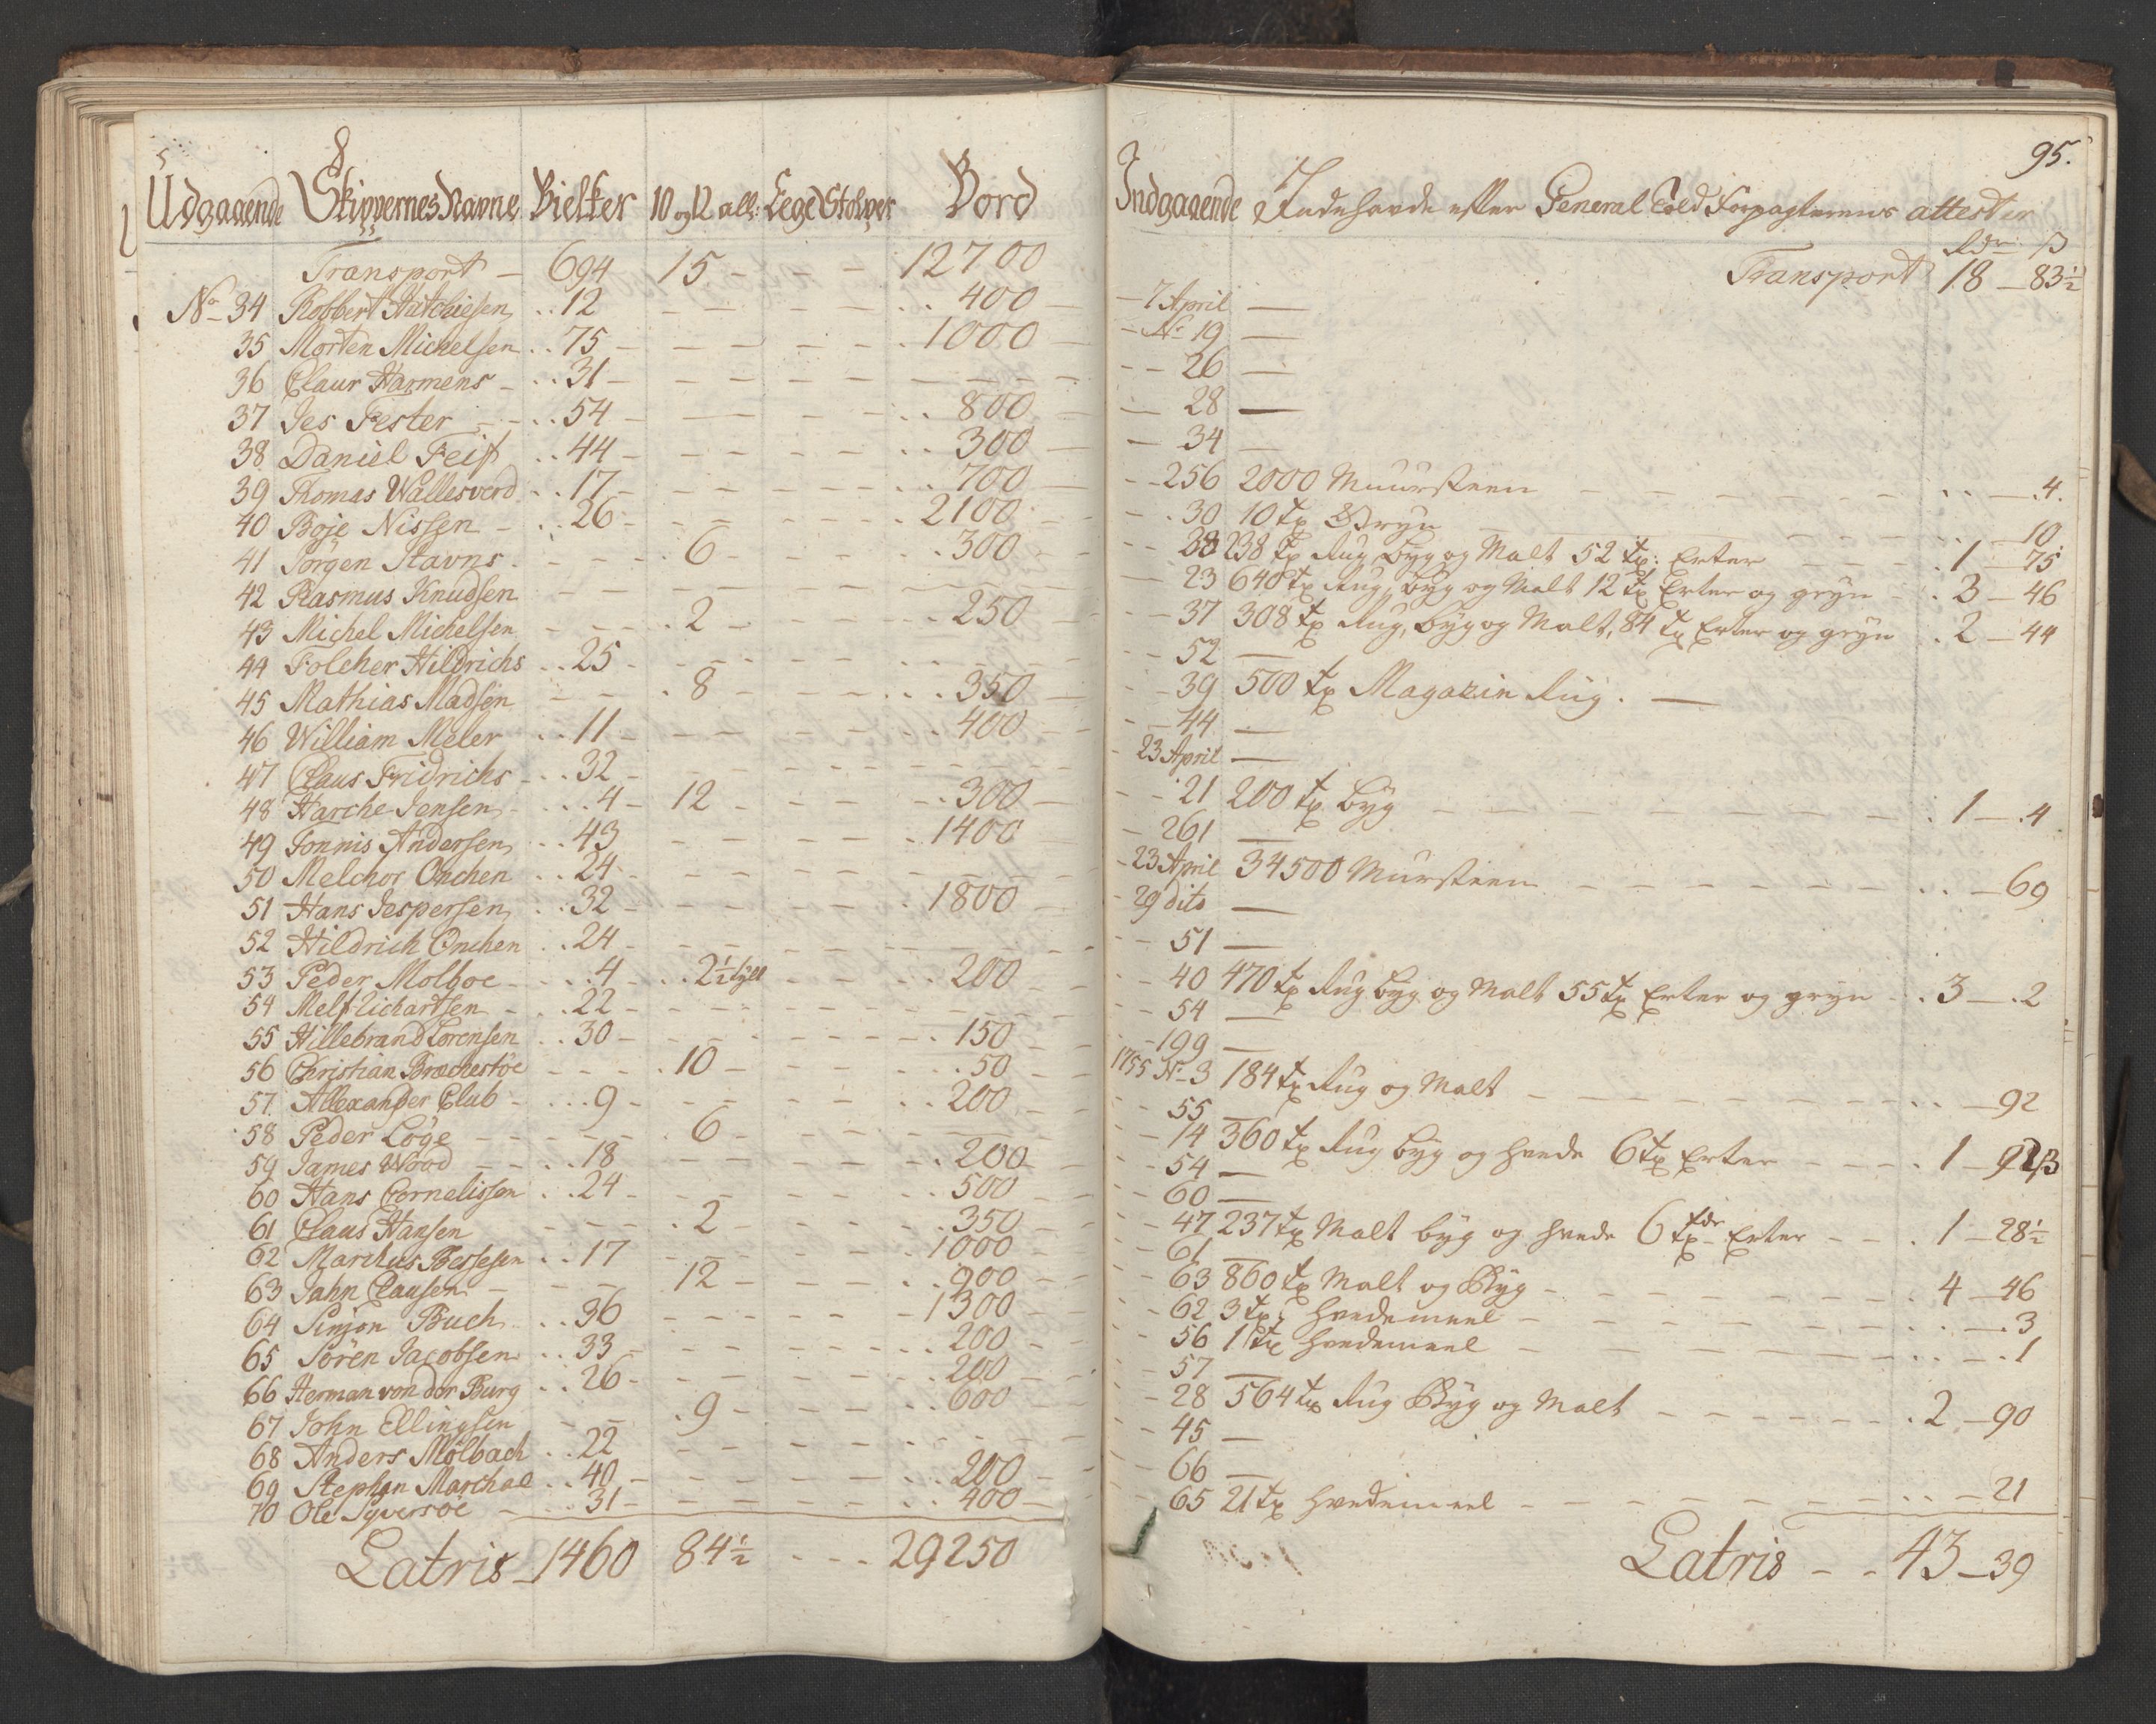 Udgaaende Skippernes Navne Bielker 10 og 12 all: Lege Stolper Bord
Transport – 694 15 – – – 12700
No 34 Robbert Hutchiesen .. 12 – – – – – .. 400 –
35 Morten Michelsen .. 75 – – – – – .. 1000 –
36 Claur Harmens – .. 31 – – – – – – – –
37 Jes Fester – – .. 54 – – – – – .. 800 –
38 Daniel Feif .. 44 – – – – – .. 300 –
39 Thomas Wallesverd .. 17 – – – – – .. 700 –
40 Boje Nissen – .. 26 – – – – – .. 2100 –
41 Jörgen Stavns – – – . 6 – – – – .. 300 –
42 Rasmus Knudsen – – – – – – – –
43 Michel Michelsen – – – . 2 – – – – .. 250 –
44 Folcher Hildrichs .. 25 – – – – – – –
45 Mathias Madsen – – . 8 – – – – .. 350 –
46 William Meler .. 11 – – – – – .. 400 –
47 Claus Fridrichs – .. 32 – – – – – – –
48 Harche Jensen – .. 4 – 12 – – – – .. 300 –
49 Tonnis Andersen .. 43 – – – – – .. 1400 –
50 Melchor Onchen .. 24 – – – – – – –
51 Hans Jespersen .. 32 – – – – – . 1800 –
52 Hildrich Onchen .. 24 – – – – – – –
53 Peder Molboe – .. 4 – .. 2½ tylt – – – .. 200 –
54 Melf Richartsen – .. 22 – – – – – – –
55 Hillebrand Lorensen .. 30 – – – – – .. 150 –
56 Christian Brochestöe – – – . 10 – – – – .. 50 –
57 Allexander Club – .. 9 – – – – – .. 200 –
58 Peder Löge – – – – . 6 – – – – – –
59 James Wood – – .. 18 – – – – – .. 200 –
60 Hans Cornelissen .. 24 – – – – – .. 500 –
61 Claus Hansen – – – . 2 – – – – .. 350 –
62 Marchus Bessesen .. 17 – – – – – .. 1000 –
63 Jahn Clausen – – – 12 – – – – .. 900 –
64 Simon Buch .. 36 – – – – – – 1300 –
65 Sören Jacobsen .. 33 – – – – – .. 200 –
66 Herman von der Burg .. 26 – – – – – .. 200 –
67 John Ellingsen – – . 9 – – – – .. 600 –
68 Anders Mölbach .. 22 – – – – – – –
69 Stephan Marchal .. 40 – – – – – .. 200 –
70 Ole Syversöe – .. 31 – – – – – .. 400 –
Latris – 1460 84½ – – – 29250
95.
Indgaaende Indehavde efter General Told Forpagternes attester
Rdr ß
Transport 18 – 83½
– 7 April —
– No 19 —
– – 26 —
– 28 —
– 34 —
– – 256 2000 Muursteen – – – – – – .. – .4.
– . 30 10 tr Gryn – – – – – – .. – 10
– – 38 238 tr Rug, Byg og Malt 52 tr: Erter – – – . 1 – 75
– 23 640 tr Rug, byg og Malt 12 tr Erter og gryn – . 3 – 46
– – 37 308 tr Rug, byg og Malt, 84 tr Erter og gryn . 2 – 44
– – 52 —
– – 39 500 tr Magazin Rug. —
– – 44 —
– 23 April —
– – 21 200 tr byg – – – – – – : 1 – .4
– 261 —
– 23 April 34500 Mursteen – – – – – – .. – 69
– 29 dito —
– – 51 —
– 40 470 tr Rug byg og Malt 55 tr Erter og gryn – . 3 – .2
– – 54 —
– – 199 —
1755 No 3 184 tr Rug og Malt – – – – – – .. – 92
– – 55 —
– – 14 360 tr Rug byg og hvede 6 tr Erter – – – . 1 – 92ß
– – 54 —
– – 60 —
– – 47 237 tr Malt byg og hvede 6 tdr Erter – – . 1 – 28½
– – 61 —
– – 63 860 tr Malt og Byg – – – – – – . 4 – 46
– – 62 3 tr: hvedemeel – – – – – – .. – .3
– – 56 1 tr hvedemeel – – – – – – .. – .1
– – 57 —
– – 28 564 tr Rug Byg og Malt – – – – – – . 2 – 90
– – 45 —
– – 66 —
– – 65 21 tr hvedemeel – – – – – – .. – 21
Latris – – 43 – 39